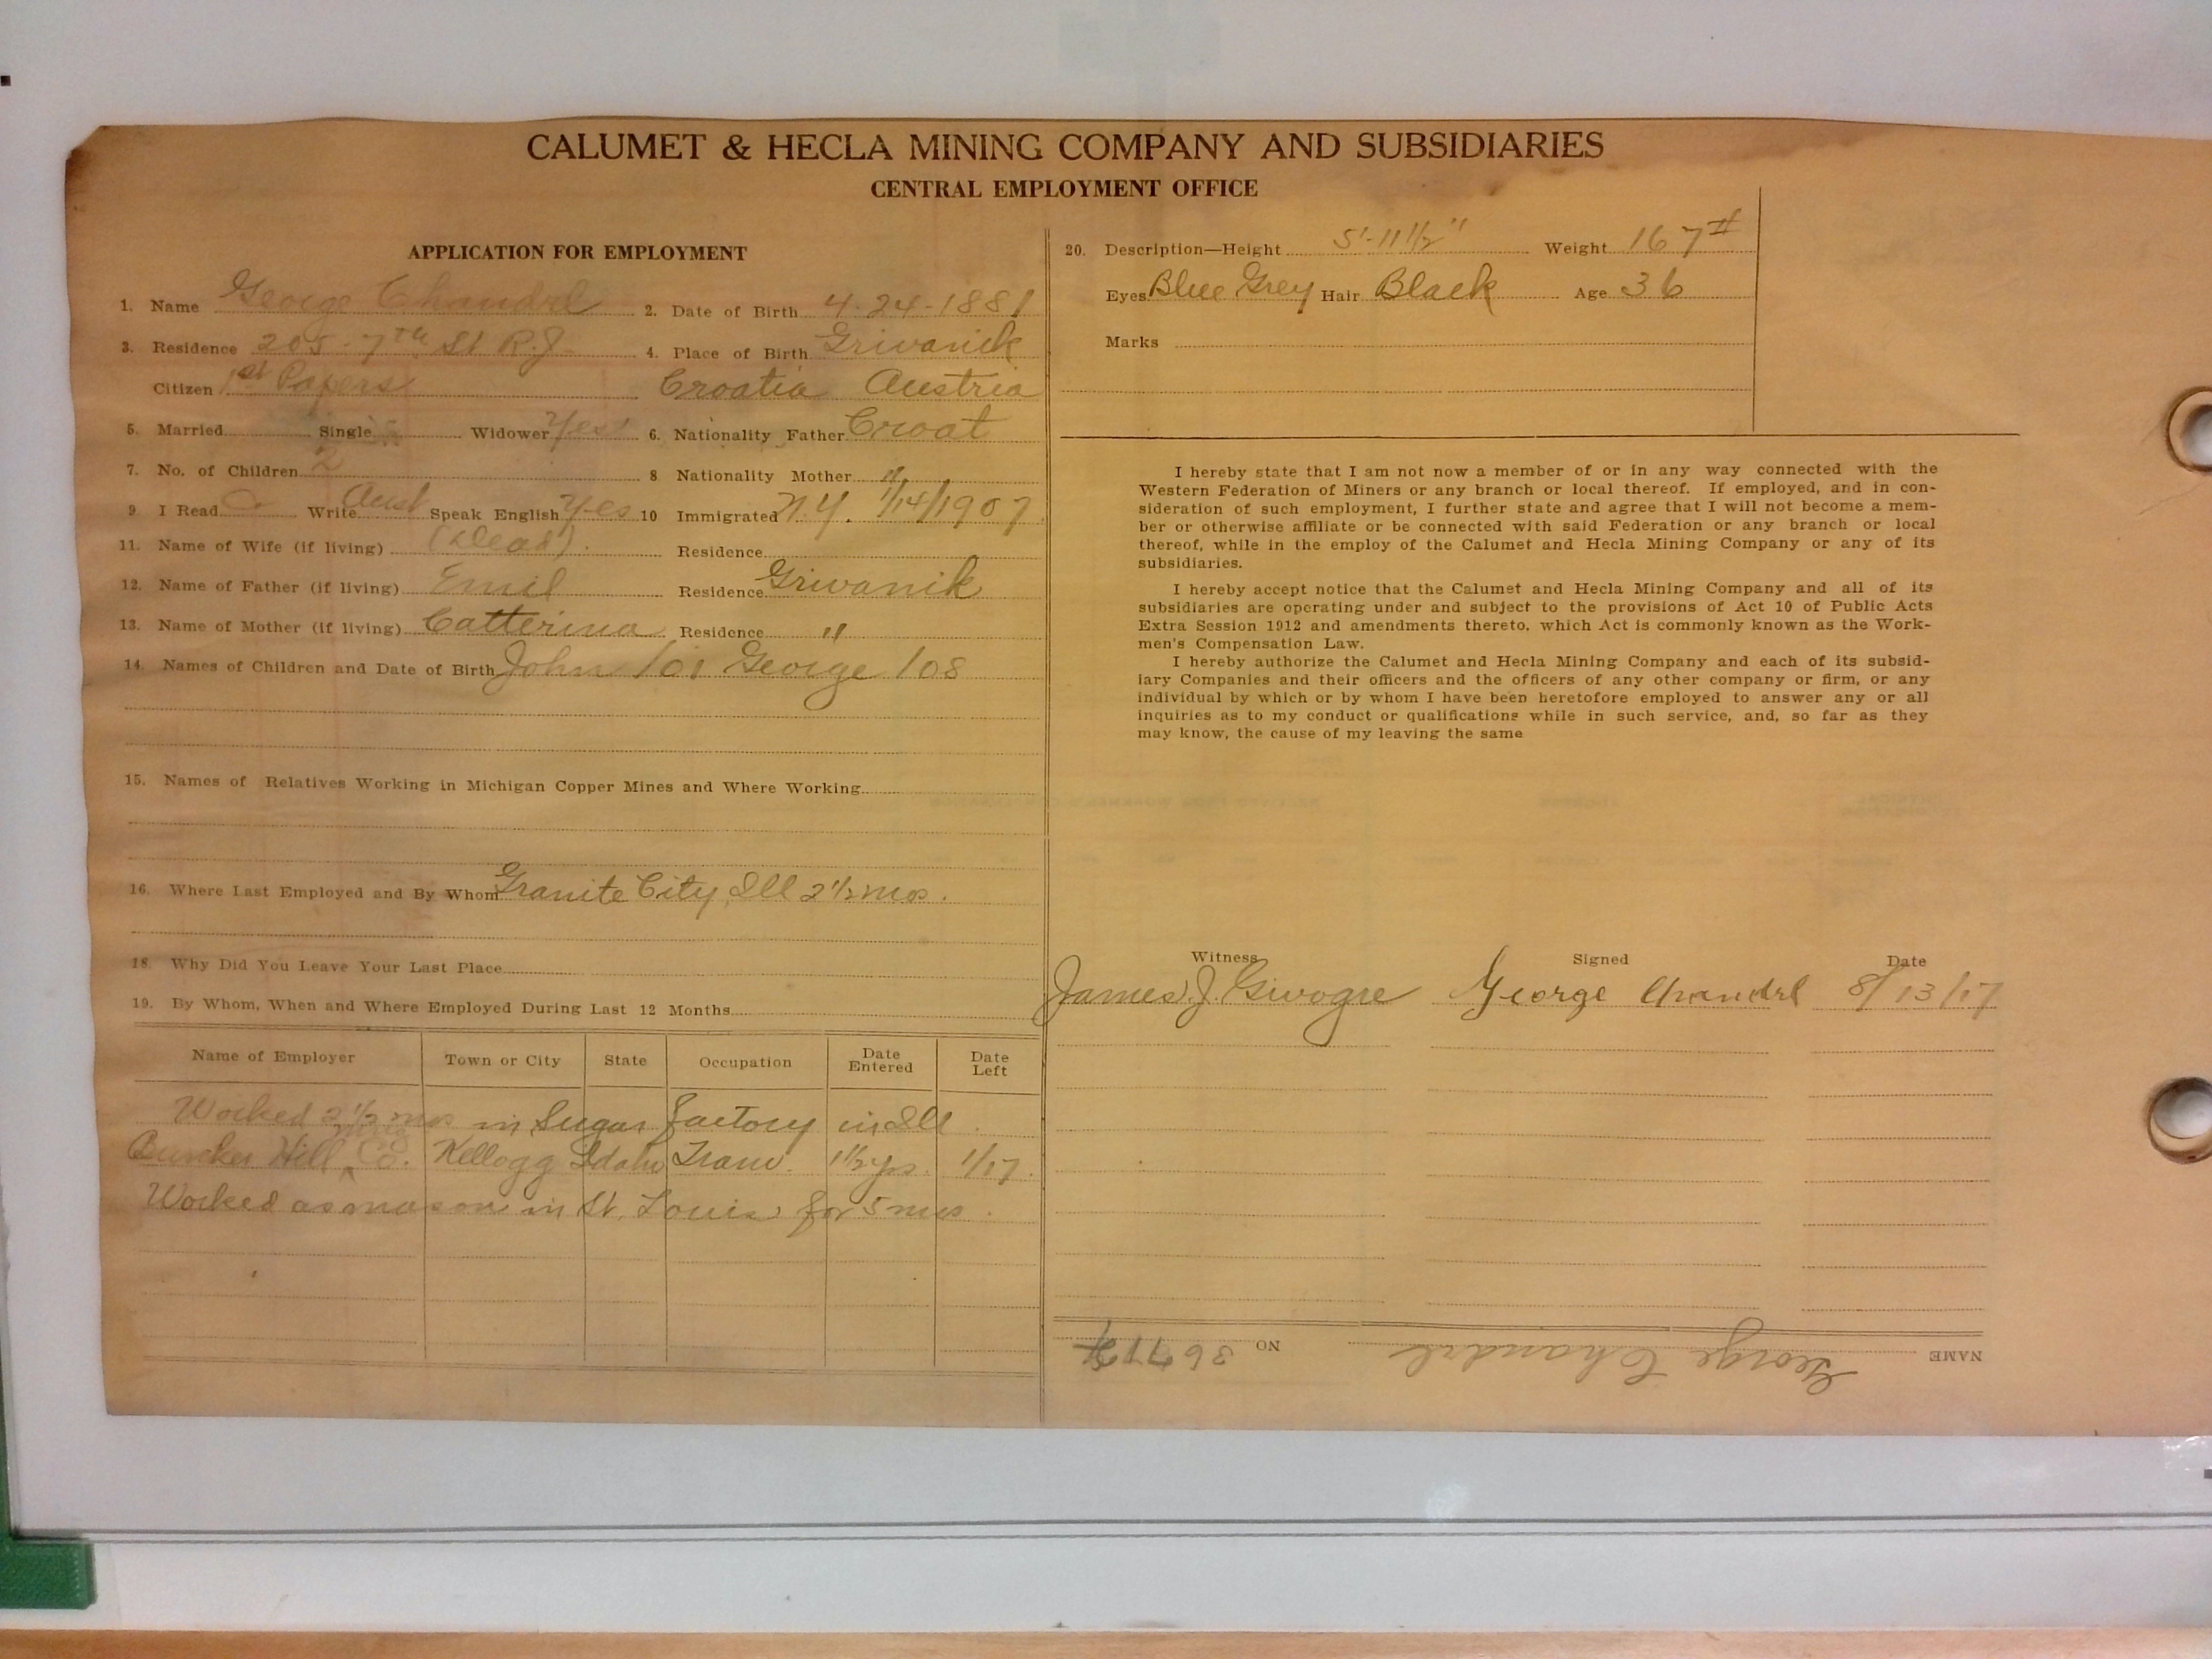 CALUMET & HECLA MINING COMPANY AND SUBSIDIARIES
CENTRAL EMPLOYMENT OFFICE
APPLICATION FOR EMPLOYMENT
1. Name George Chandrl 2. Date of Birth 4-24-1881
3. Residence 205-7th St R.J. 4. Place of Birth Grivanik
Citizen 1st Papers Croatia Austria
5. Married Single Widower Yes 6. Nationality Father Croat
7. No. of Children 2 8 Nationality Mother "
9 I Read Write Aust Speak English Yes 10 Immigrated N.Y. 1/14/1907
11. Name of Wife (if living) (Dead). Residence
12. Name of Father (if living) Emil Residence Grivanik
13. Name of Mother (if living) Catterina Residence "
14. Names of Children and Date of Birth John /01 George /08
15. Names of Relatives Working in Michigan Copper Mines and Where Working
16. Where Last Employed and By Whom Granite City, Ill 2 1/2 mos.
18. Why Did You Leave Your Last Place
19. By Whom, When and Where Employed During Last 12 Months
Name of Employer Town or City State Occupation Date Entered Date Left
Worked 2 1/2 mos in Sugar factory in Ill.
Buncker Hill Co. Kellogg Idaho Tram. 1 1/2 yrs. 1/17.
Worked as mason in St. Louis for 5 mos.
20. Description—Height 5'-11 1/2" Weight 167#
Eyes Blue Grey Hair Black Age 36
Marks
I hereby state that I am not now a member of or in any way connected with the
Western Federation of Miners or any branch or local thereof. If employed, and in con-
sideration of such employment, I further state and agree that I will not become a mem-
ber or otherwise affiliate or be connected with said Federation or any branch or local
thereof, while in the employ of the Calumet and Hecla Mining Company or any of its
subsidiaries.
I hereby accept notice that the Calumet and Hecla Mining Company and all of its
subsidiaries are operating under and subject to the provisions of Act 10 of Public Acts
Extra Session 1912 and amendments thereto, which Act is commonly known as the Work-
men's Compensation Law.
I hereby authorize the Calumet and Hecla Mining Company and each of its subsid-
iary Companies and their officers and the officers of any other company or firm, or any
individual by which or by whom I have been heretofore employed to answer any or all
inquiries as to my conduct or qualifications while in such service, and, so far as they
may know, the cause of my leaving the same
Witness Signed Date
James J. George 8/13/17
NAME George Chandrl NO